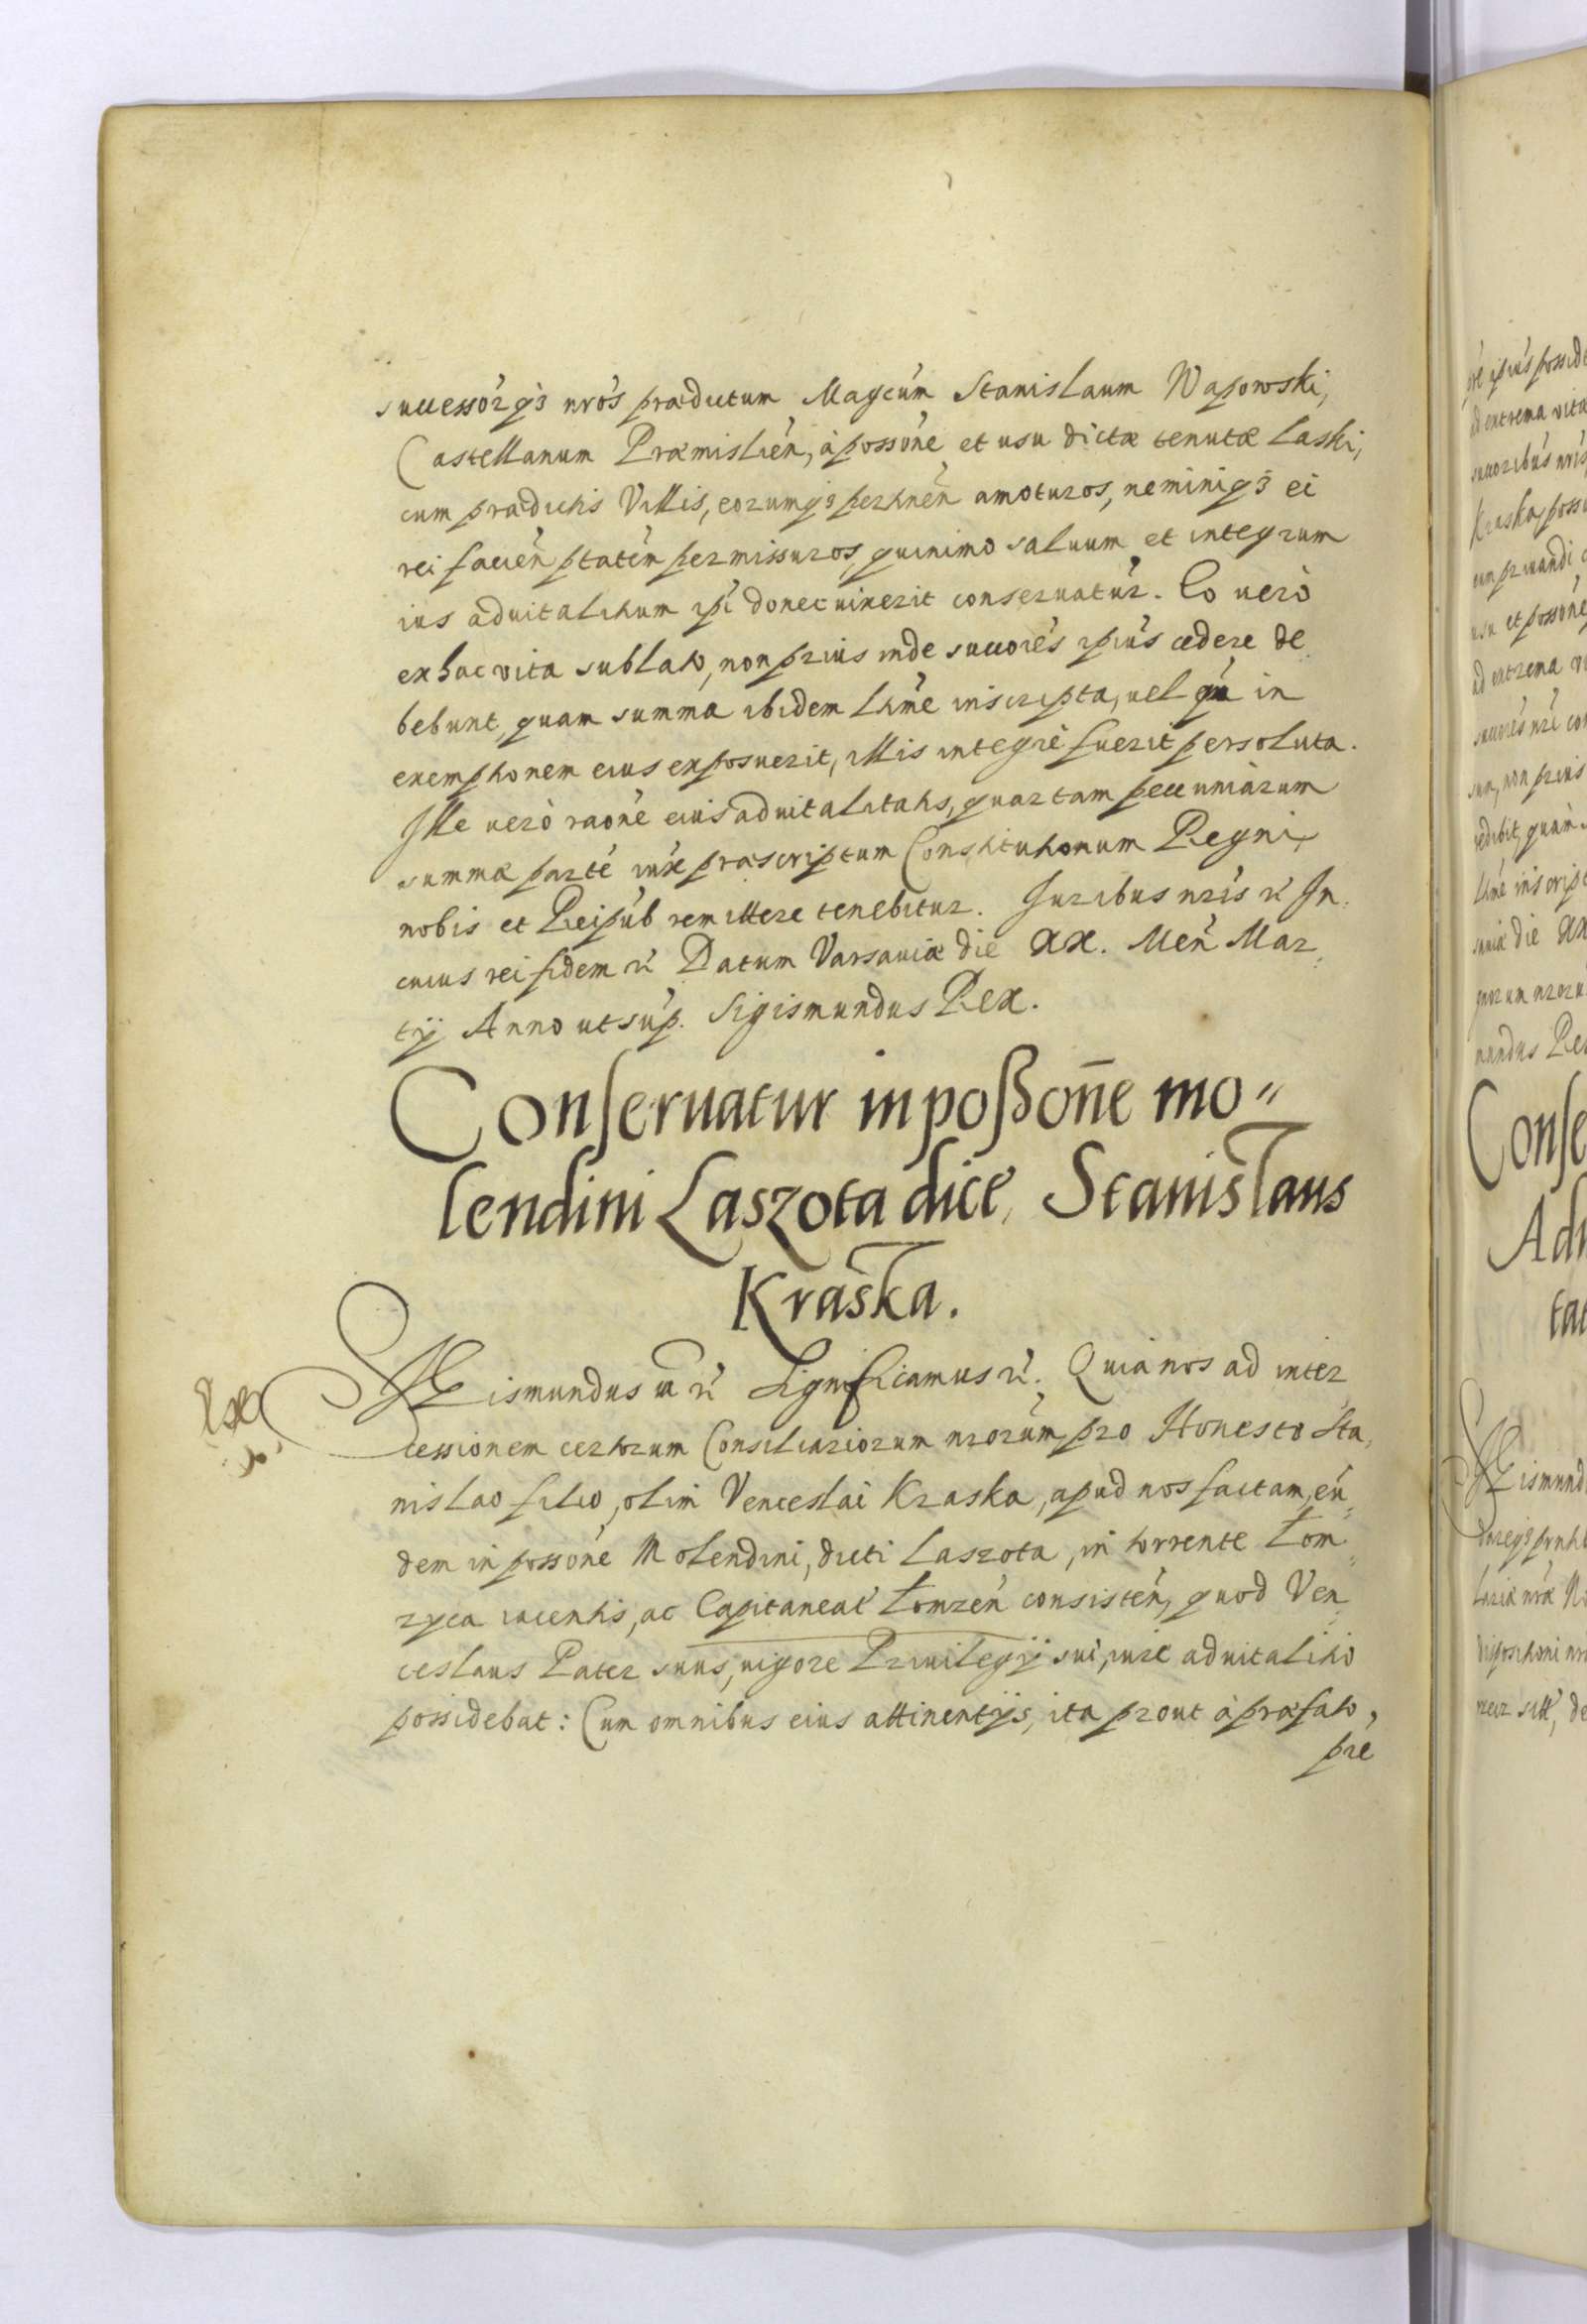 successórqꝫ nrós prædictum Magcúm Stanislaum Wapowski,
Castellanum Præmislién, à possóne et usu dictæ tenutæ Laski,
cum prædictis Villis, eorumqꝫ pertnén amoturos, neminiqꝫ ei
rei facién ptatém permissuros, quinimo saluum et integrum
ius aduitalitium ipí donec vixerit conseruatúr. Eo verò
ex hac vita sublato, non prius inde succorés ipiús cedere de
bebunt, quam summa ibidem ltimé inscripta, uel in
exemptionem eius exposuerit, illis integrè fuerit persoluta.
Ille verò raoné eius aduitalitatis, quartam pecuniarum
summæ parté iuxˊ præscriptum Constitutionum Regni,
nobis et Reipúb remittere tenebitur. Juribus nrís rˊ In
cuius rei fidem rˊ Datum Varsauiæ die XX. Mén Mar
tij Anno ut súp. Sigismundus Rex.
Conseruatur in possoñe mo"
lendini Laszota dict, Stanislaus
Kraska.
SIGismundus III rˊ Significamus rˊ. Quia nos ad inter
cessionem certorum Consiliariorum nrorúm, pro Honesto Sta,
nislao filio, olim Venceslai Kraska, apud nos factam, eún
dem in possoné Molendini, dicti Laszota, in torrente Łom
zyca iacentis, ac Capitaneatˊ Łomzén consistén, quod Ven
ceslaus Pater suus, vigore Priuilegij sui, iure aduitalitio
possidebat: Cum omnibus eius attinentijs, ita prout à præfato,
pre